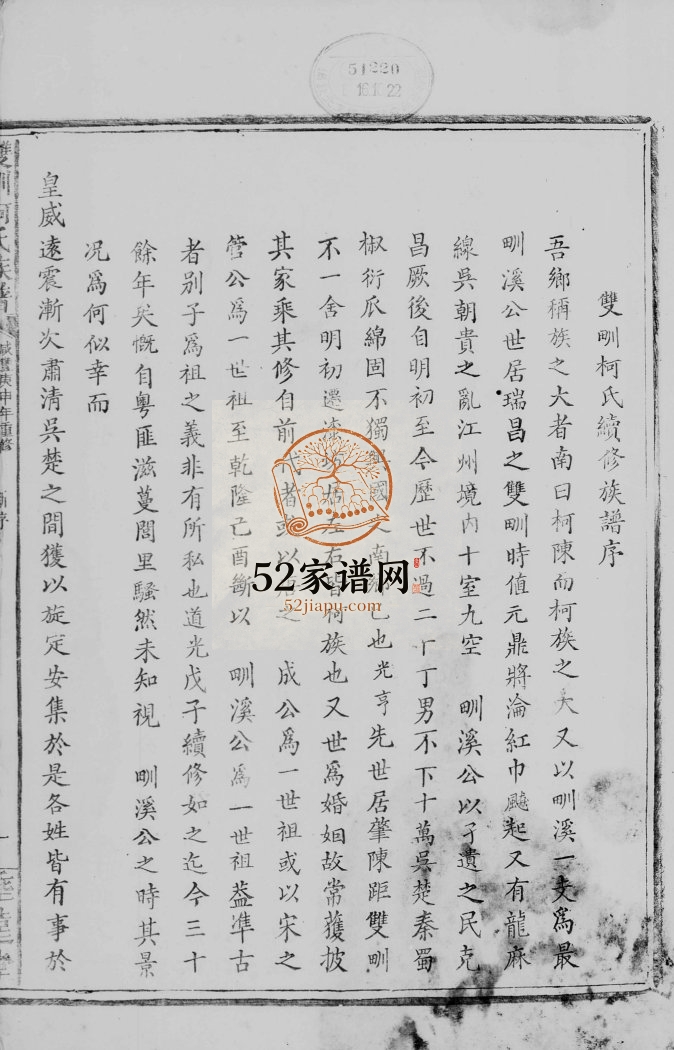 51220
16.10.22
雙甽柯氏續修族譜序
吾鄉稱族之大者南曰柯陳而柯族之大又以甽溪一支爲最
甽溪公世居瑞昌之雙甽時值元鼎將淪紅巾颷起又有龍麻
線吳朝貴之亂江州境內十室九空 甽溪公以孑遺之民克
昌厥後自明初至今歷世不過二十丁男不下十萬吳楚秦蜀
椒衍瓜綿固不獨 國 南 已也光亨先世居肇陳距雙甽
不一舍明初遷 左右皆柯族也又世爲婚姻故常獲披
其家乘其修自前代者或以 之 成公爲一世祖或以宋之
管公爲一世祖至乾隆己酉斷以 甽溪公爲一世祖葢準古
者別子爲祖之義非有所私也道光戊子續修如之迄今三十
餘年矣慨自粤匪滋蔓閭里騷然未知視 甽溪公之時其景
況爲何似幸而
皇威遠震漸次肅清吳楚之間獲以旋定安集於是各姓皆有事於
雙甽柯氏族譜
咸豐庚申年重修
序
一
52家谱网
52jiapu.com